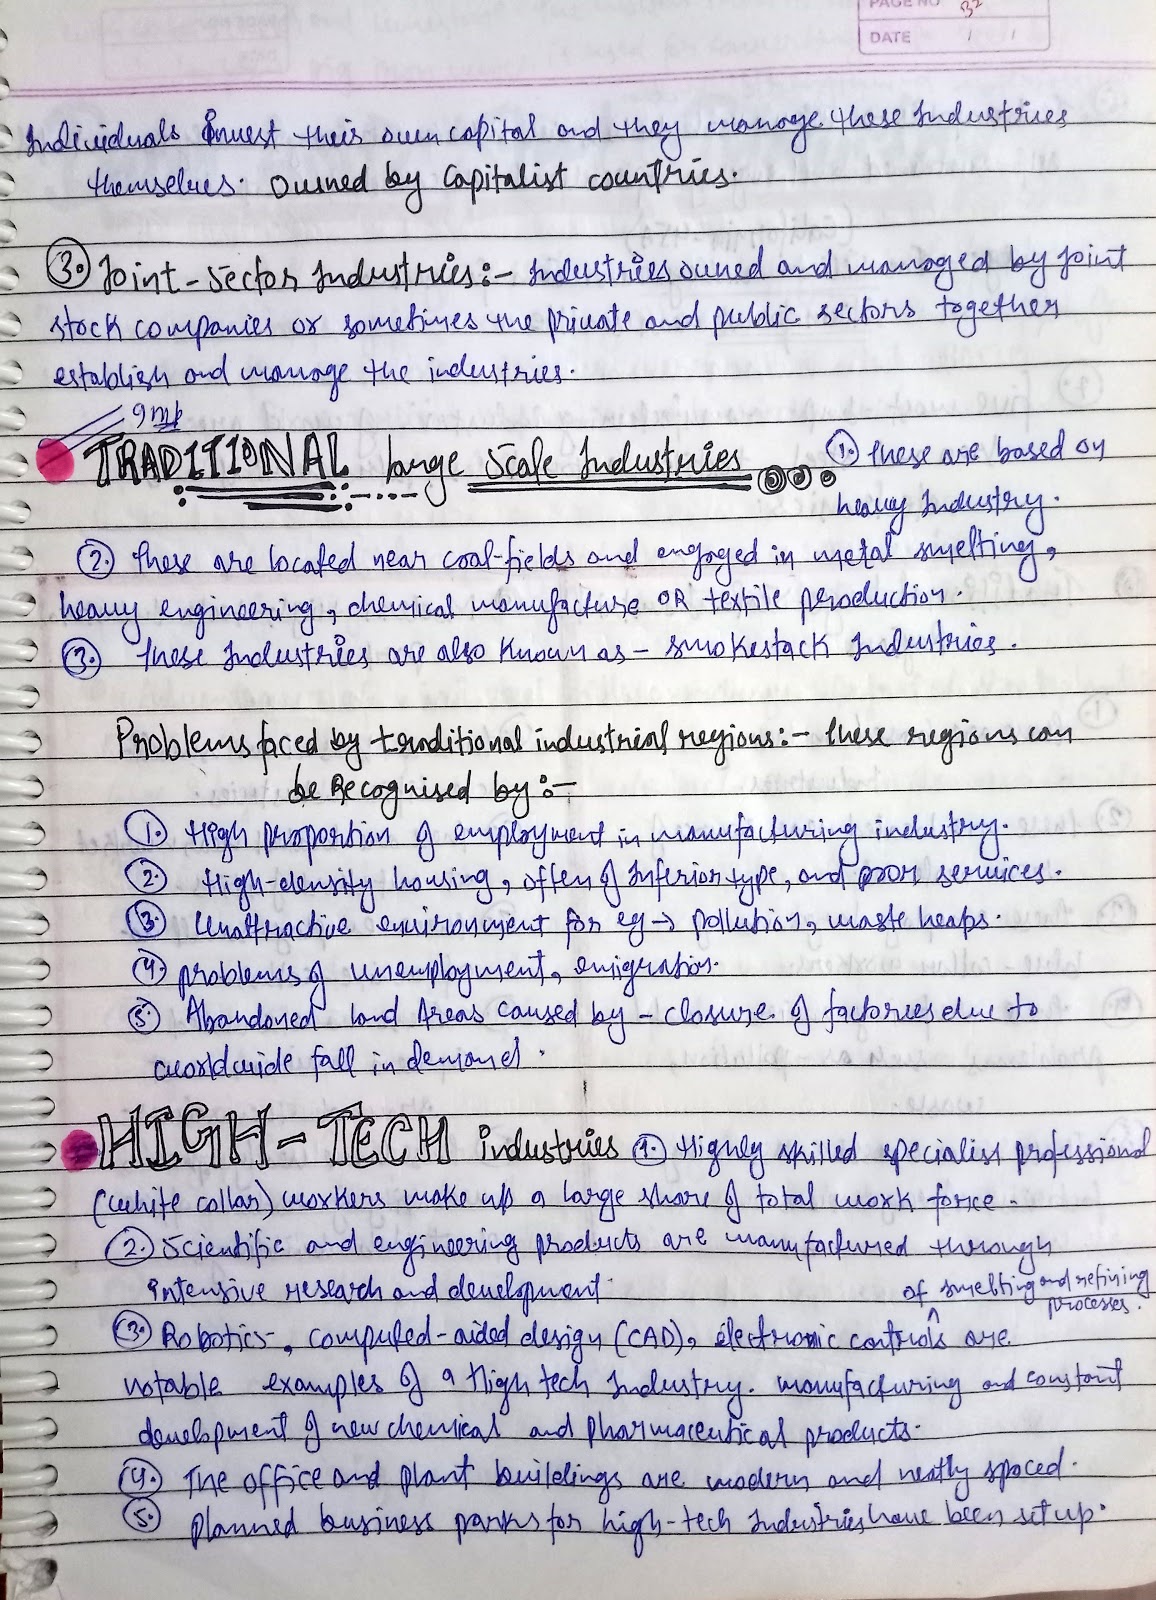 PAGE NO 32
DATE / /
Individuals invest their own capital and they manage these Industries
themselves. Owned by Capitalist countries.
3. Joint-Sector Industries:- Industries owned and managed by joint
stock companies or sometimes the private and public sectors together
establish and manage the industries.
Imp
TRADITIONAL large Scale Industries 1. These are based on
heavy Industry.
2. These are located near coal-fields and engaged in metal smelting,
heavy engineering, chemical manufacture OR textile production.
3. These Industries are also known as - smokestack Industries.
Problems faced by traditional industrial regions:- These regions can
be Recognised by:-
1. High proportion of employment in manufacturing industry.
2. High-density housing, often of Inferior type, and poor services.
3. Unattractive environment for eg → pollution, waste heaps.
4. problems of unemployment, emigration.
5. Abandoned land Areas caused by - closure of factories due to
worldwide fall in demand.
HIGH-TECH industries 1. Highly skilled specialist professional
(white collar) workers make up a large share of total work force.
2. Scientific and engineering products are manufactured through
intensive research and development.
of smelting and refining
processes.
3. Robotics, computed-aided design (CAD), electronic controls are
notable examples of a High tech Industry. manufacturing and constant
development of new chemical and pharmaceutical products.
4. The office and plant buildings are modern and neatly spaced.
5. planned business parks for high-tech Industries have been set up.